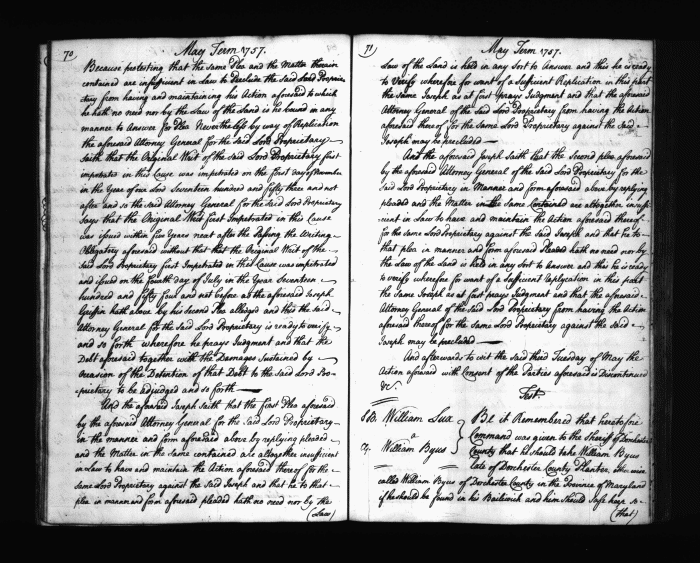 70
May Term 1757.
Because protesting that the same Plea and the Matter therein
contained are insufficient in Law to Preclude the said Lord Proprie-
tary from having and maintaining his Action aforesaid to which
he hath no need nor by the Law of the Land is he bound in any
manner to Answer for Plea Nevertheless by way of Replication
the aforesaid Attorney General for the said Lord Proprietary
saith that the Original Writ of the said Lord Proprietary first
impetrated in this Cause was impetrated on the first day of November
in the Year of our Lord Seventeen hundred and fifty three and not
after and so the said Attorney General for the said Lord Proprietary
says that the Original Writ first Impetrated in this Cause
was issued within five Years next after the Passing the Writing
Obligatory aforesaid without that that the Original Writ of the
said Lord Proprietary first Impetrated in that Cause was impetrated
and issued on the fourth day of July in the Year Seventeen
hundred and fifty four and not before as the aforesaid Joseph
Griffin hath above by his second Plea alledged and this the said
Attorney General for the said Lord Proprietary is ready to verify
and so forth wherefore he prays Judgment and that the
Debt aforesaid together with the Damages Sustained by
Occasion of the Detention of that Debt to the said Lord Pro-
prietary to be adjudged and so forth
And the aforesaid Joseph saith that the first Plea aforesaid
by the aforesaid Attorney General for the said Lord Proprietary
in the manner and form aforesaid above by replying pleaded
and the Matter in the same contained are altogether insufficient
in Law to have and maintain the Action aforesaid thereof for the
same Lord Proprietary against the said Joseph and that he to that
plea in manner and form aforesaid pleaded hath no need nor by the
(Law)
71
May Term 1757.
Law of the Land is held in any sort to Answer and this he is ready
to Verify wherefore for want of a Sufficient Replication in this part
the same Joseph as at first prays Judgment and that the aforesaid
Attorney General of the said Lord Proprietary from having the Action
aforesaid thereof for the same Lord Proprietary against the said
Joseph may be precluded
And the aforesaid Joseph saith that the Second plea aforesaid
by the aforesaid Attorney General of the said Lord Proprietary for the
said Lord Proprietary in Manner and form aforesaid above by replying
pleaded and the Matter in the same Contained are altogether insuffi-
cient in Law to have and maintain the Action aforesaid thereof
for the same Lord Proprietary against the said Joseph and that he to
that plea in manner and form aforesaid Pleaded hath no need nor by
the Law of the Land is held in any sort to Answer and this he is ready
to verify wherefore for want of a Sufficient replication in this part
the same Joseph as at first prays Judgment and that the aforesaid
Attorney General of the said Lord Proprietary from having the Action
aforesaid thereof for the same Lord Proprietary against the said
Joseph may be precluded
And afterwards to wit the said third Tuesday of May the
Action aforesaid with Consent of the Parties aforesaid is Discontinued
&c.
Test.
William Lux
a
William Byus
Be it Remembered that heretofore
Command was given to the Sheriff of Dorchester
County that he should take William Byus
late of Dorchester County Planter, otherwise
called William Byus of Dorchester County in the Province of Maryland
if he should be found in his Bailiwick and him should safe keep so
(that)